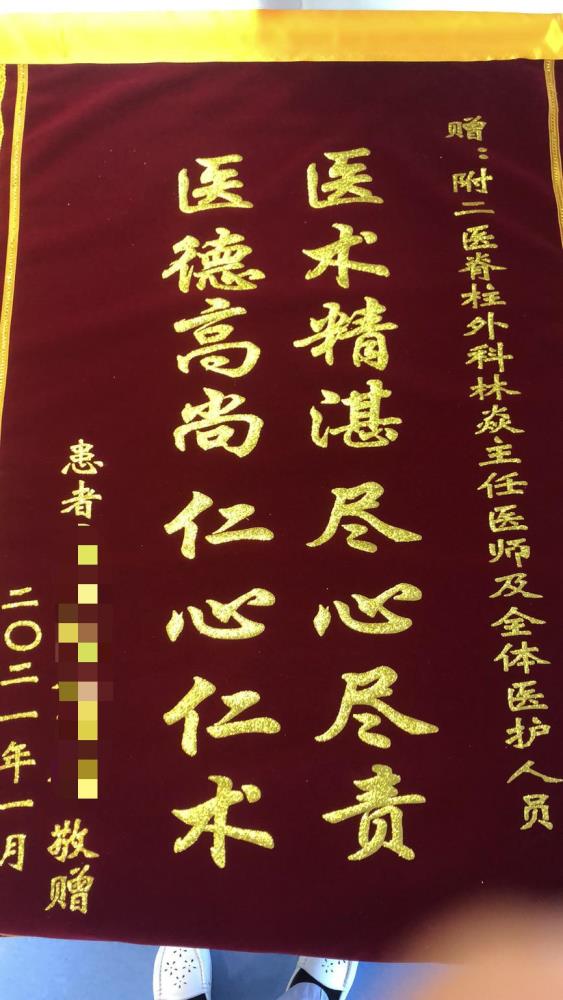 赠：附二医脊柱外科林焱主任医师及全体医护人员
医术精湛尽心尽责
医德高尚仁心仁术
患者
敬赠
二〇二一年一月